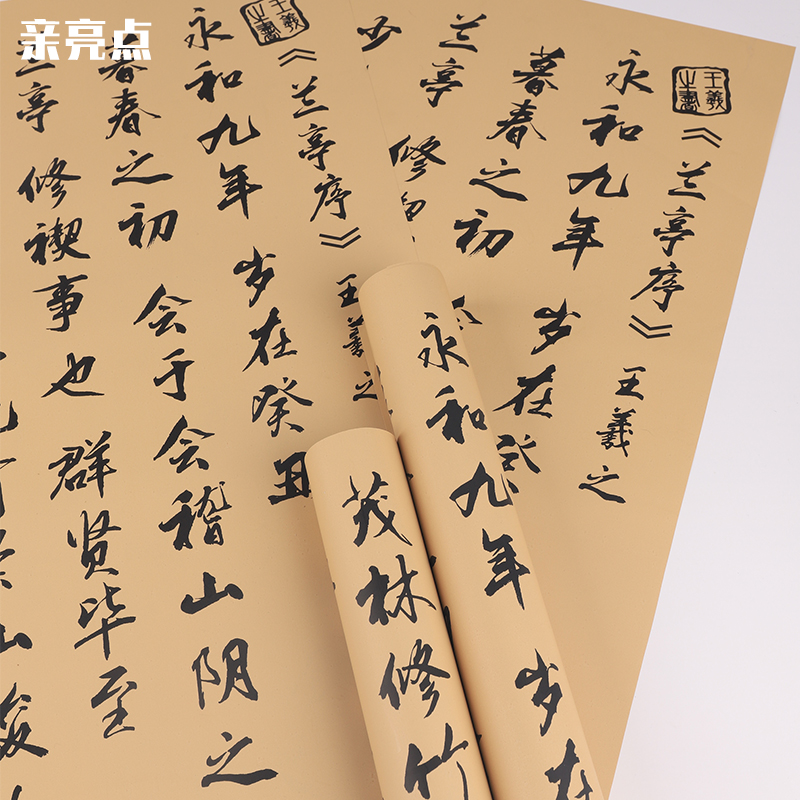 亲亮点
《兰亭序》 王羲之
王羲之書
永和九年 岁在
暮春之初
兰亭 修
《兰亭序》 王羲之
永和九年 岁在癸丑
暮春之初 会于会稽山阴之
兰亭 修禊事也 群贤毕至
永和九年 岁在
茂林修竹